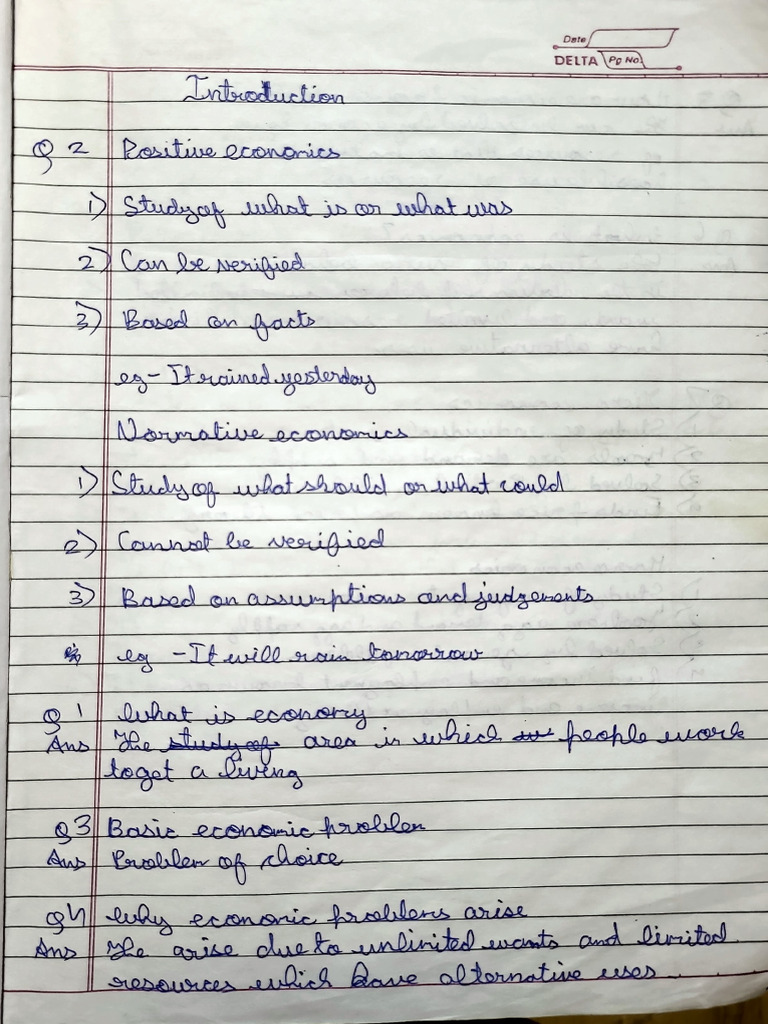 Date
DELTA Pg No.
Introduction
Q 2 Positive economics
1) Study of what is or what was
2) Can be verified
3) Based on facts
eg - It rained yesterday
Normative economics
1) Study of what should or what could
2) Cannot be verified
3) Based on assumptions and judgements
eg - It will rain tomorrow
Q 1 What is economy
Ans The study of area in which people work
to get a living
Q3 Basic economic problem
Ans Problem of choice
Q4 Why economic problems arise
Ans The arise due to unlimited wants and limited
resources which have alternative uses.